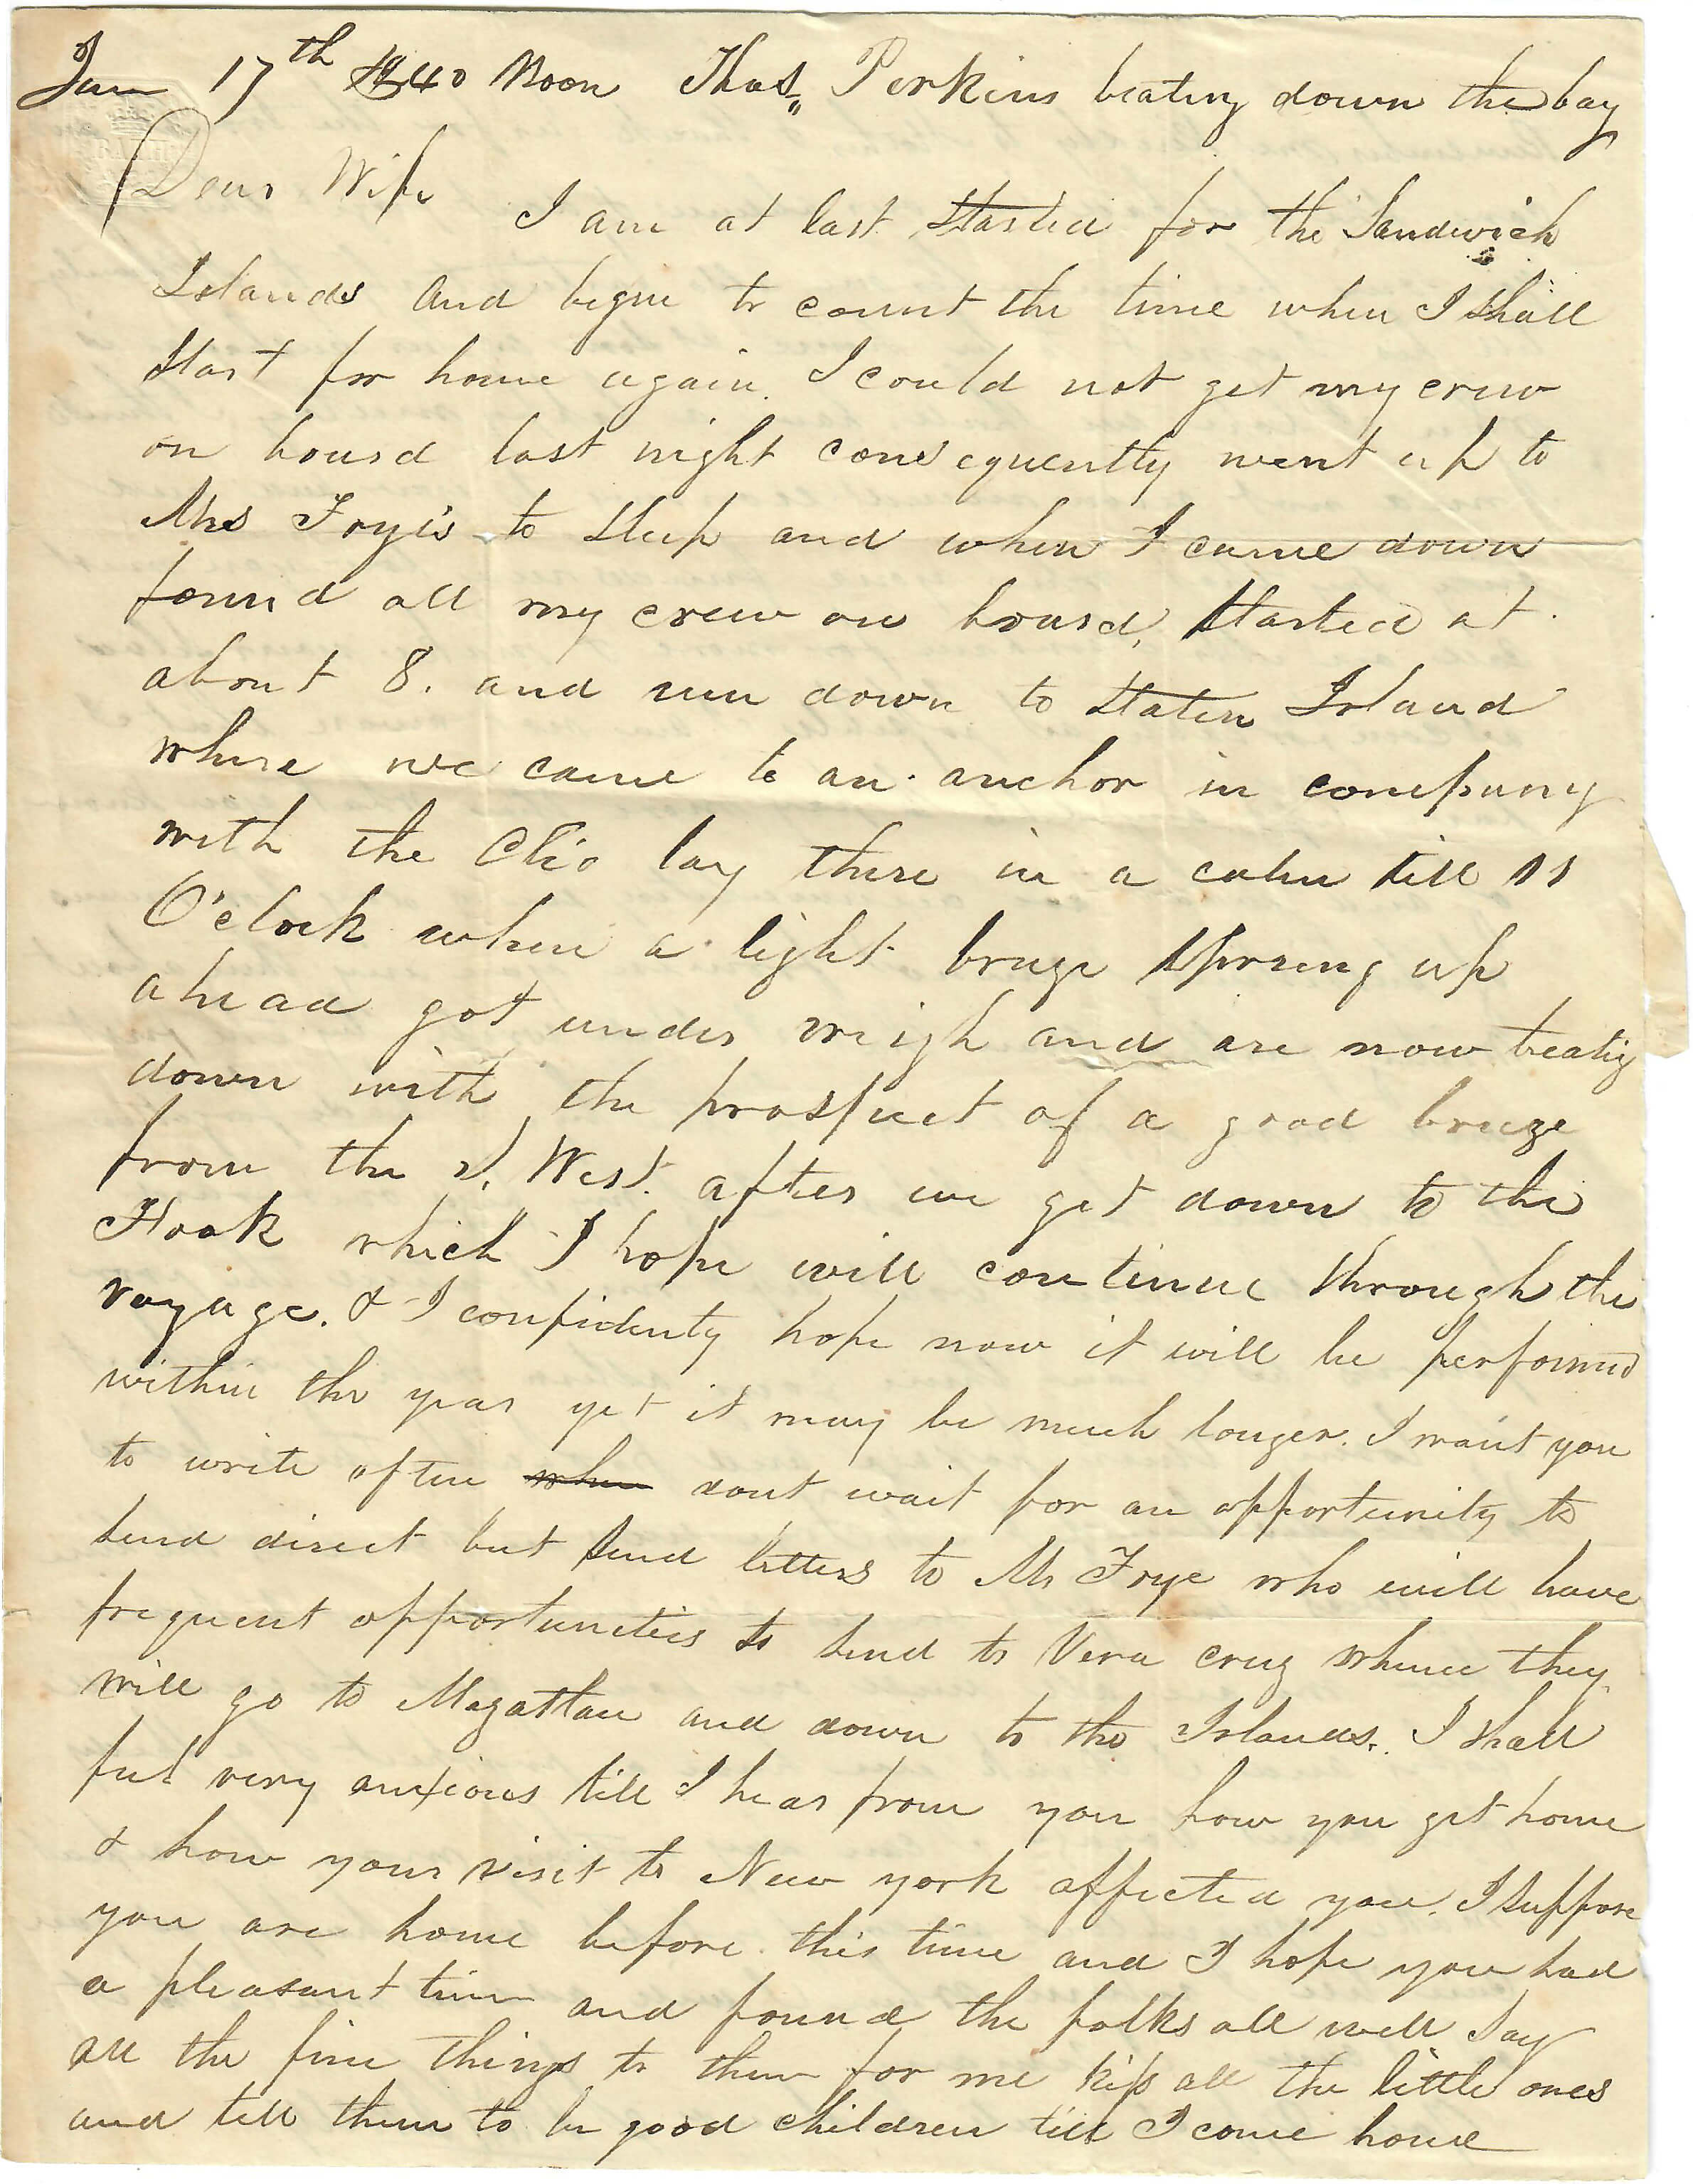 Jan 17th 1840 Noon Thos. Perkins beating down the bay
BATH
Dear Wife I am at last started for the Sandwich
Islands and begin to count the time when I shall
start for home again. I could not get my crew
on board last night consequently went up to
Mrs Frye's to sleep and when I came down
found all my crew on board, started at
about 8. and run down to Staten Island
where we came to an anchor in company
with the Clio lay there in a calm till 11
O'clock when a light breeze sprung up
ahead got under weigh and are now beating
down with the prospect of a good breeze
from the N. West. after we get down to the
Hook which I hope will continue through the
voyage. & I confidently hope now it will be performed
within the year yet it may be much longer. I want you
to write often when dont wait for an opportunity to
send direct but send letters to Mr Frye who will have
frequent opportunities to send to Vera cruz whence they
will go to Mazatlan and down to the Islands. I shall
feel very anxious till I hear from you how you get home
& how your visit to New york affected you. I suppose
you are home before this time and I hope you had
a pleasant time and found the folks all well Say
all the fine things to them for me kiss all the little ones
and tell them to be good children till I come home